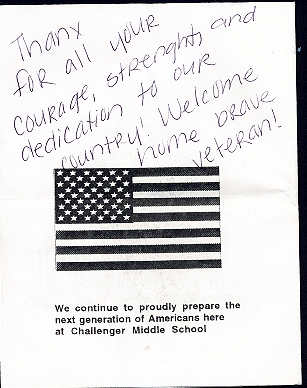 Thanx
for all your
courage, strenght, and
dedication to our
country! Welcome
home brave
veteran!
We continue to proudly prepare the
next generation of Americans here
at Challenger Middle School